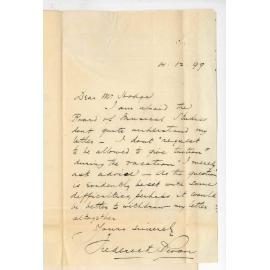 14. 12. 99
Dear Mr Hodge
I am afraid the
Board of Musical Studies
dont quite understand my
letter – I dont "request
to be allowed to give tuition"
during the vacation I merely
ask advice – As the question
is evidently beset with some
difficulties, perhaps it would
be better to withdraw my letter
altogether
Yours sincerely
Frederick Dixon